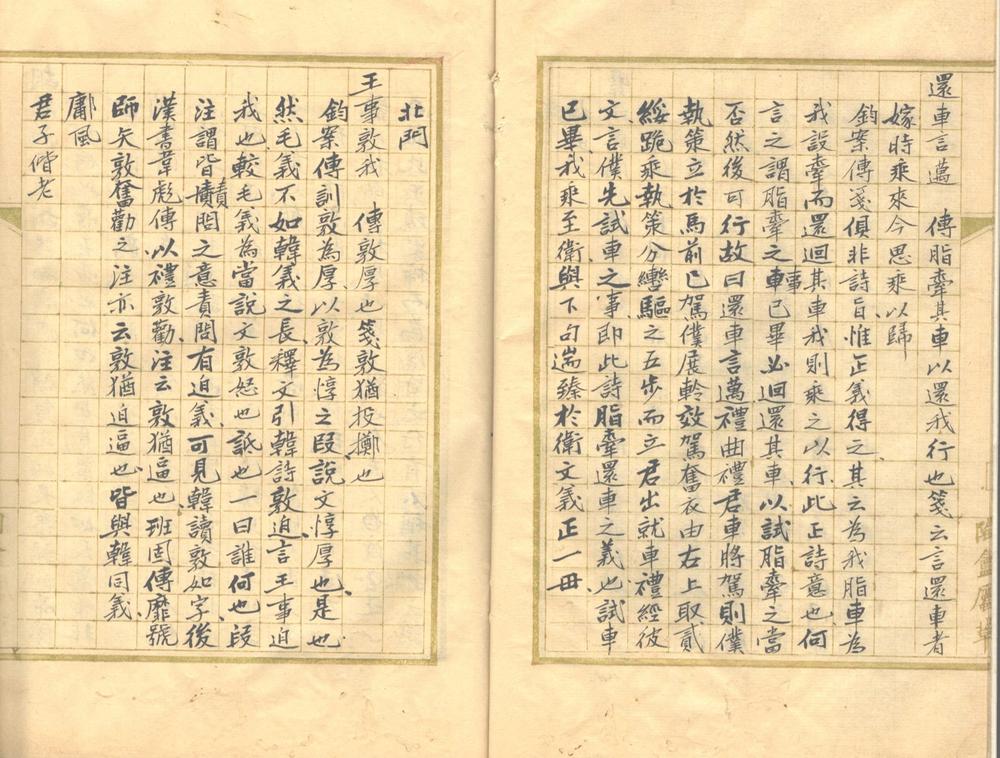 還車言邁　傳脂舝其車以還我行也箋云言還車者
嫁時乘來今思乘以歸
鈞案傳箋俱非詩旨惟正義得之其云為我脂車為
我設舝而還迴其車我則乘之以行此正詩意也何
言之謂脂舝之車事已畢必迴還其車以試脂舝之當
否然後可行故曰還車言邁禮曲禮君車將駕則僕
執策立於馬前已駕僕展軨效駕奮衣由右上取貳
綏跪乘執策分轡驅之五步而立君出就車禮經彼
文言僕先試車之事即此詩脂舝還車之義也試車
已畢我乘至衛與下句遄臻於衛文義正一毌
北門
王事敦我　傳敦厚也箋敦猶投擲也
鈞案傳訓敦為厚以敦為惇之叚說文惇厚也是也
然毛義不如韓義之長釋文引韓詩敦迫言王事迫
我也較毛義為當說文敦怒也詆也一曰誰何也段
注謂皆責問之意責問有迫義可見韓讀敦如字後
漢書韋彪傳以禮敦勸注云敦猶逼也班固傳靡號
師矢敦奮勸之注亦云敦猶迫逼也皆與韓同義
鄘風
君子偕老